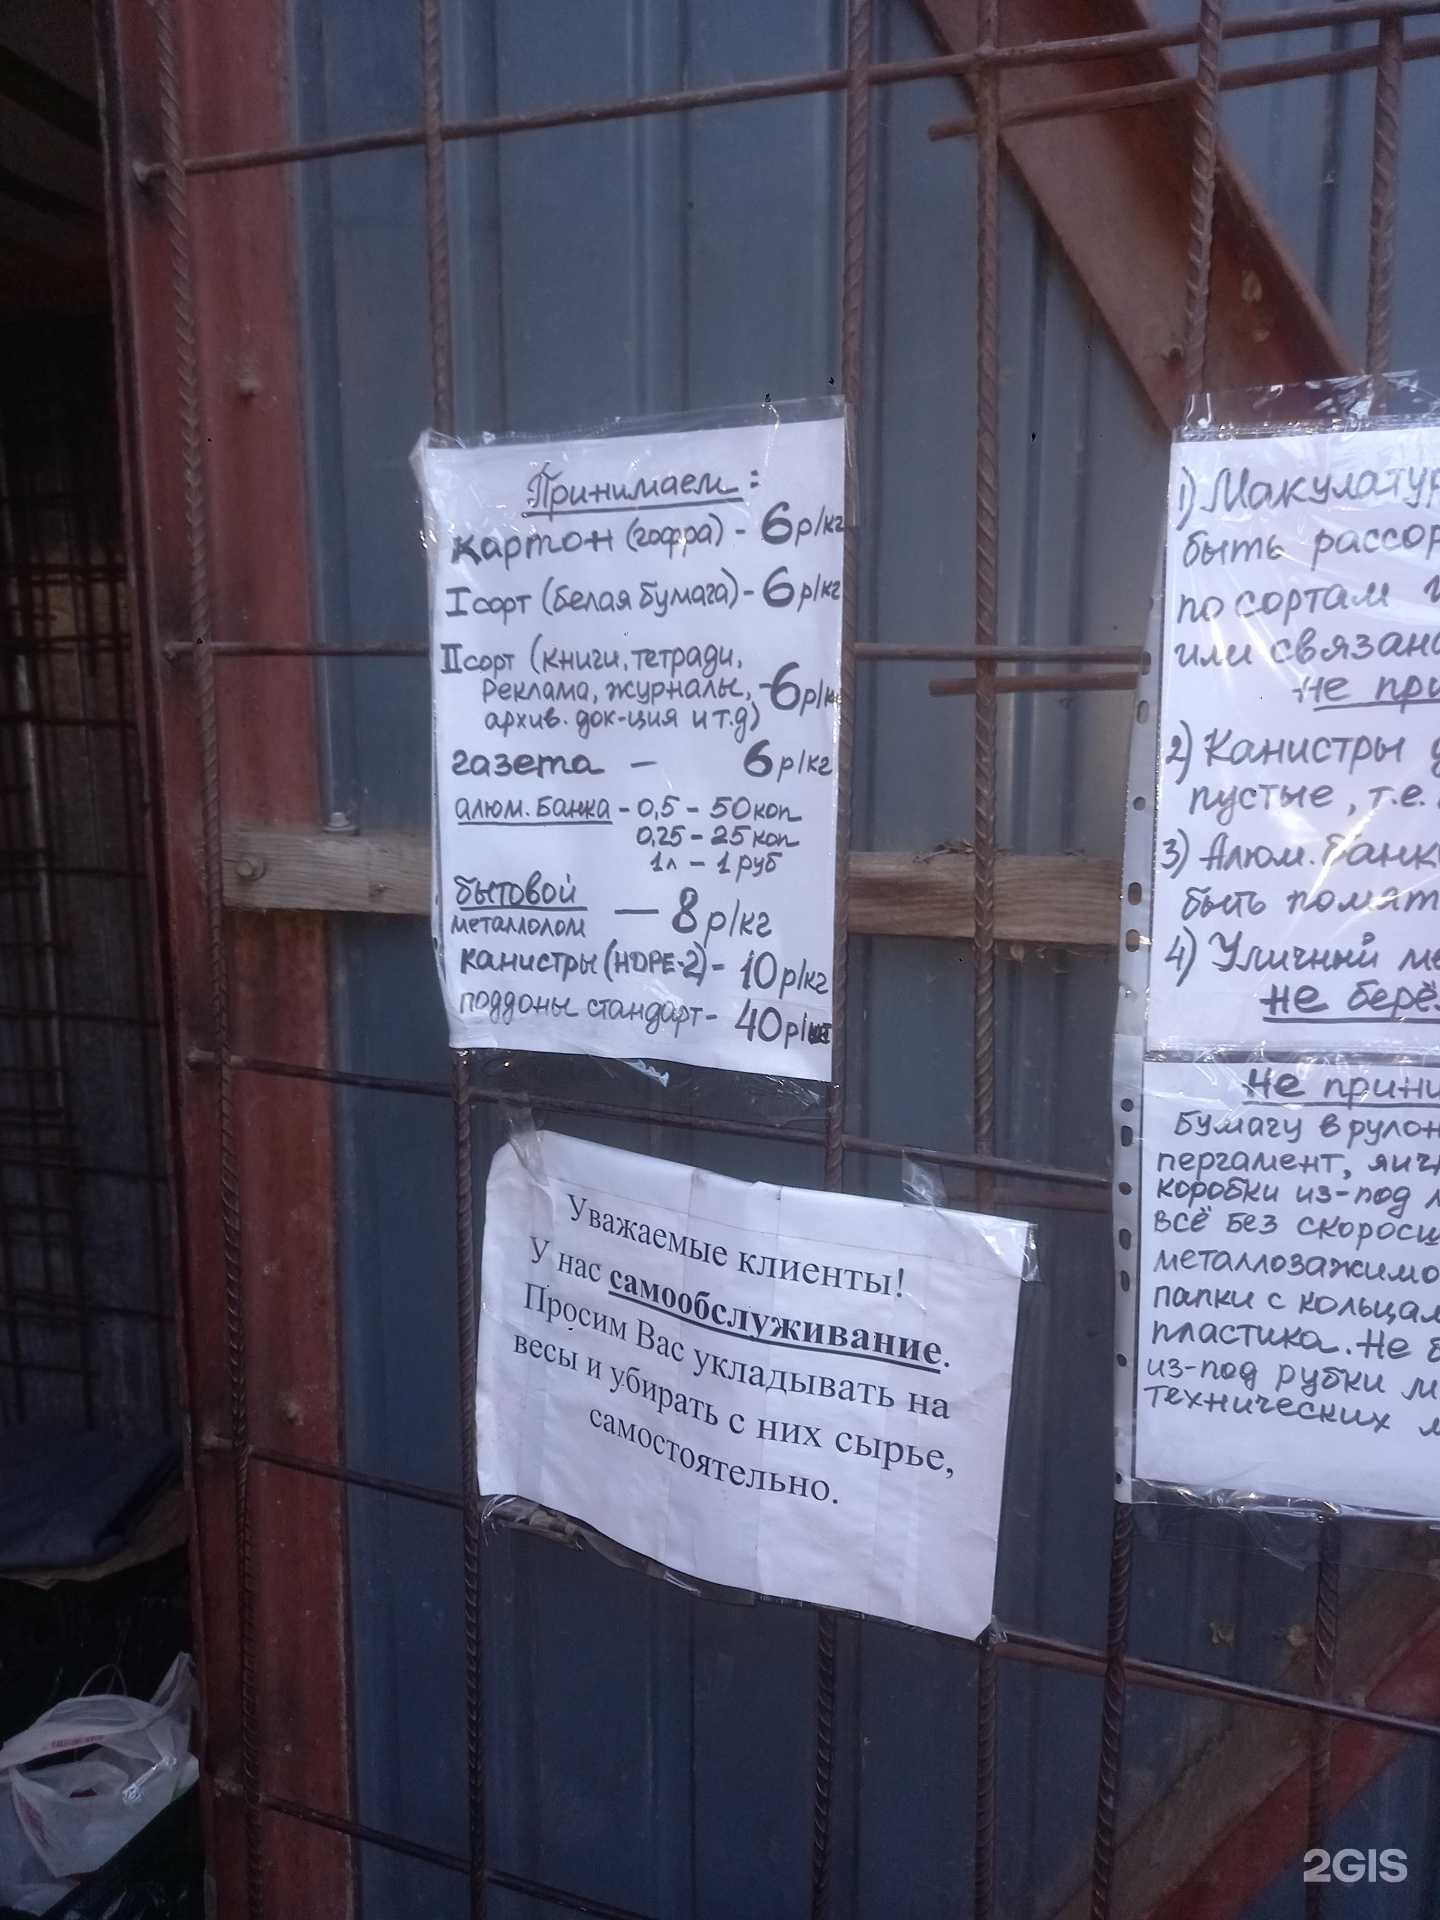 Принимаем:
картон (гофра) - 6 р/кг
I сорт (белая бумага) - 6 р/кг
II сорт (книги, тетради,
реклама, журналы, - 6 р/кг
архив. док-ция и т.д)
газета - 6 р/кг
алюм. банка - 0,5 - 50 коп
0,25 - 25 коп
1л - 1 руб
бытовой
металлолом - 8 р/кг
канистры (HDPE-2) - 10 р/кг
поддоны стандарт - 40 р/шт
Уважаемые клиенты!
У нас самообслуживание.
Просим Вас укладывать на
весы и убирать с них сырье,
самостоятельно.
1) Макулатур
быть рассор
по сортам
или связан
не при
2) Канистры
пустые, т.е.
3) Алюм. банк
быть помят
4) Уличный ме
не берё
Не прини
бумагу в рулон
пергамент, яич
коробки из-под
всё без скоросш
металлозажимо
папки с кольцам
пластика. Не
из-под рубки м
технических
2GIS